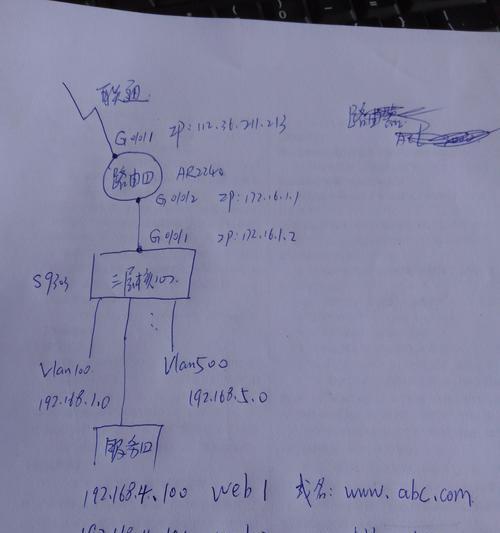 联通
G0/0/1 IP: 112.36.211.213
路由口 AR2240
G0/0/2 IP: 172.16.1.1
G0/0/1 IP: 172.16.1.2
S9303 三层核心
Vlan100 Vlan500
192.168.1.0 192.168.5.0
服务口
192.168.4.100 web1 域名: www.abc.com